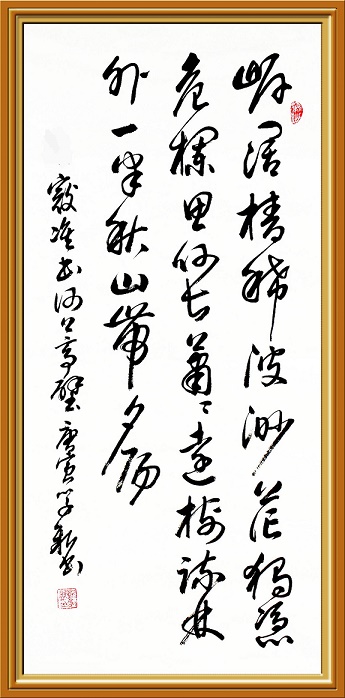 岸阔樯稀波渺茫独凭
危栏思何长萧萧远树疏林
外一半秋山带夕阳
寇准书河上亭壁庚寅学新书